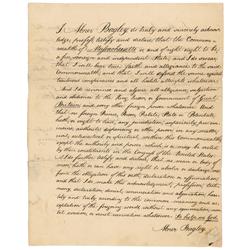 I Abner Bagley do truly and sincerely acknow-
ledge, profess, testify and declare that the Common-
wealth of Massachusetts is and of right ought to be
a free, sovereign and independent State; and I do swear
that I will bear true faith and allegiance to the said
Commonwealth, and that I will defend the same against
traitorous conspiracies and all hostile attempts whatsoever:
And that I do renounce and abjure all allegiance, subjection
and obedience to the King, Queen or Government of Great
Britain and every other foreign power whatsoever: And
that no foreign Prince, Person, Prelate, State or Potentate,
hath, or ought to have, any jurisdiction, superiority, pre-
eminence, authority, dispensing or other power, in any matter,
civil, ecclesiastical or spiritual within this Commonwealth;
except the authority and power which is or may be vested
by their constituents in the Congress of the United States:
And I do further testify and declare, that no man or body of
men, hath or can have any right to absolve or discharge me
from the obligation of this oath, declaration or affirmation;
and that I do make this acknowledgment, profession, testi-
mony, declaration, denial, renunciation and abjuration, hear-
tily and truly according to the common meaning and acc-
eptation of the foregoing words without any equivocation, men-
tal evasion, or secret reservation whatsoever. So help me God.
Abner Bagley